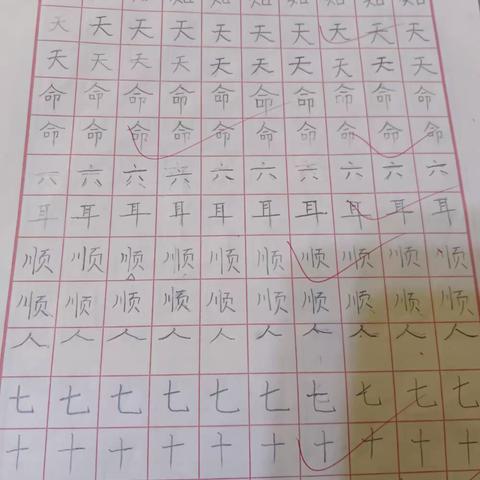 知知知知知知知知知知
天天天天天天天天天天
天天天天天天天天天天
命命命命命命命命命命
命命命命命命命命命命
六六六六六六六六六六
耳耳耳耳耳耳耳耳耳耳
顺顺顺顺顺顺顺顺顺顺
顺顺顺顺顺顺顺顺顺顺
人人人人人人人人人人
七七七七七七七七七七
十十十十十十十十十十